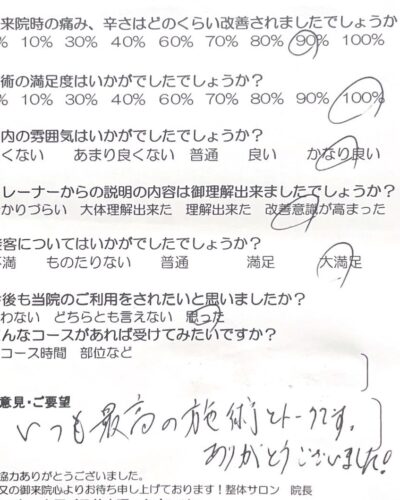 来院時の痛み、辛さはどのくらい改善されましたでしょうか
% 10% 30% 40% 60% 70% 80% 90% 100%
術の満足度はいかがでしたでしょうか?
% 10% 30% 40% 60% 70% 80% 90% 100%
内の雰囲気はいかがでしたでしょうか?
くない あまり良くない 普通 良い かなり良い
レーナーからの説明の内容は御理解出来ましたでしょうか?
かりづらい 大体理解出来た 理解出来た 改善意識が高まった
接客についてはいかがでしたでしょうか?
満 ものたりない 普通 満足 大満足
後も当院のご利用をされたいと思いましたか?
わない どちらとも言えない 思った
んなコースがあれば受けてみたいですか?
コース時間 部位など
意見・ご要望
いつも最高の施術とトークです。
ありがとうございました!
協力ありがとうございました。
又の御来院心よりお待ち申し上げております!整体サロン 院長